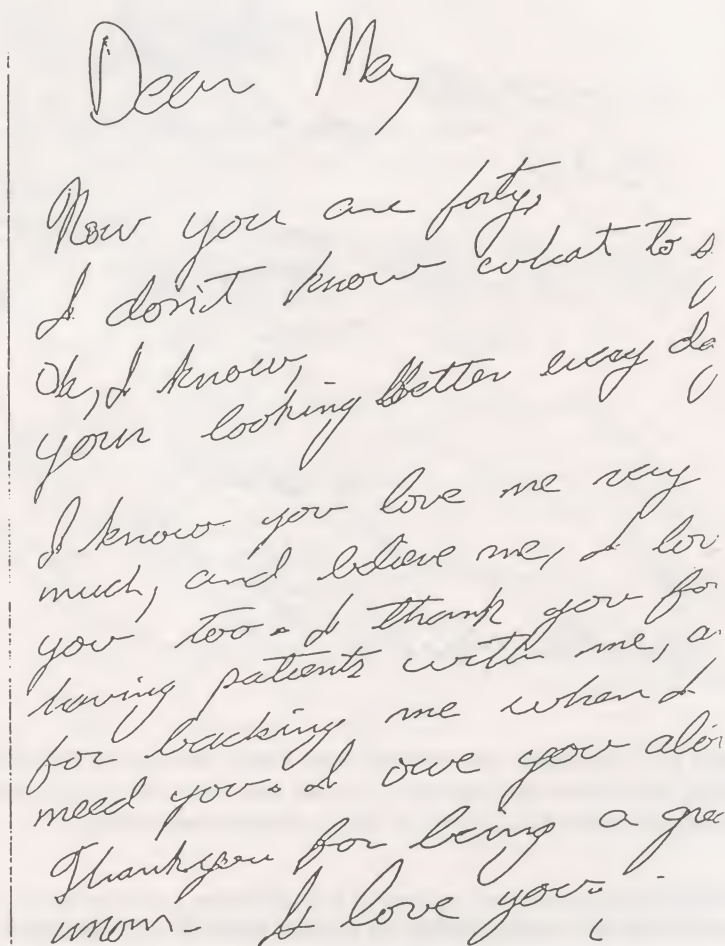 Dear May
Now you are forty,
I don't know what to s
Ok, I know,
your looking better every da
I know you love me very
much, and believe me, I lov
you too. I thank you for
having patients with me, a
for backing me when I
need you. I owe you alot
Thankyou for being a grea
mom - I love you.